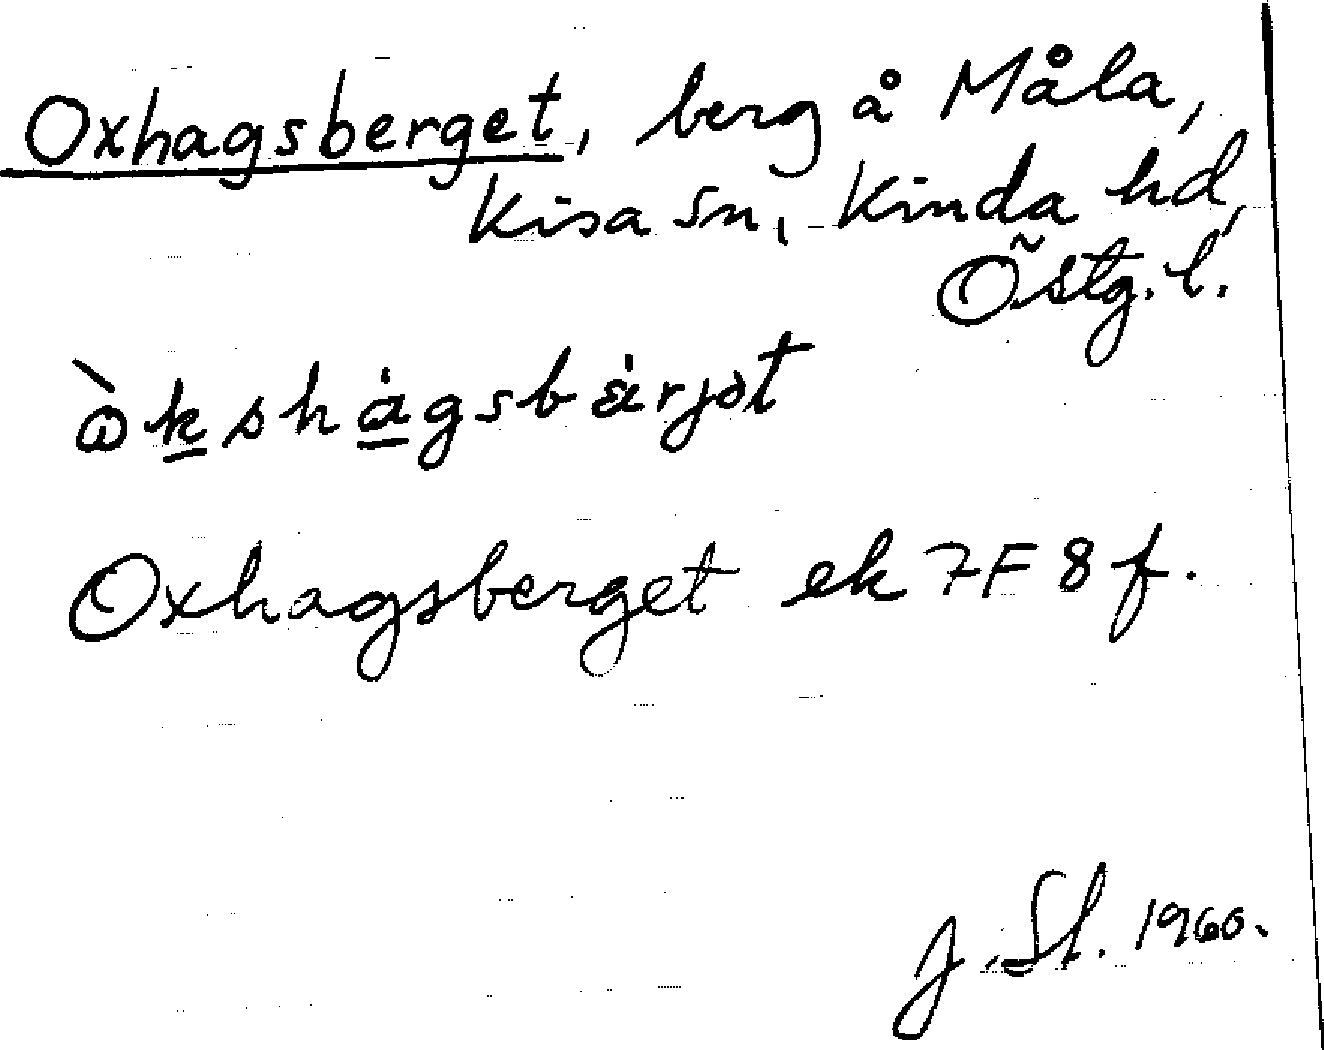 Oxhagsberget, berg å Måla,
Kisa sn, Kinda hd,
Östg. l.
òkshágsbärjət
Oxhagsberget ek 7F 8f.
J. Sl. 1960.